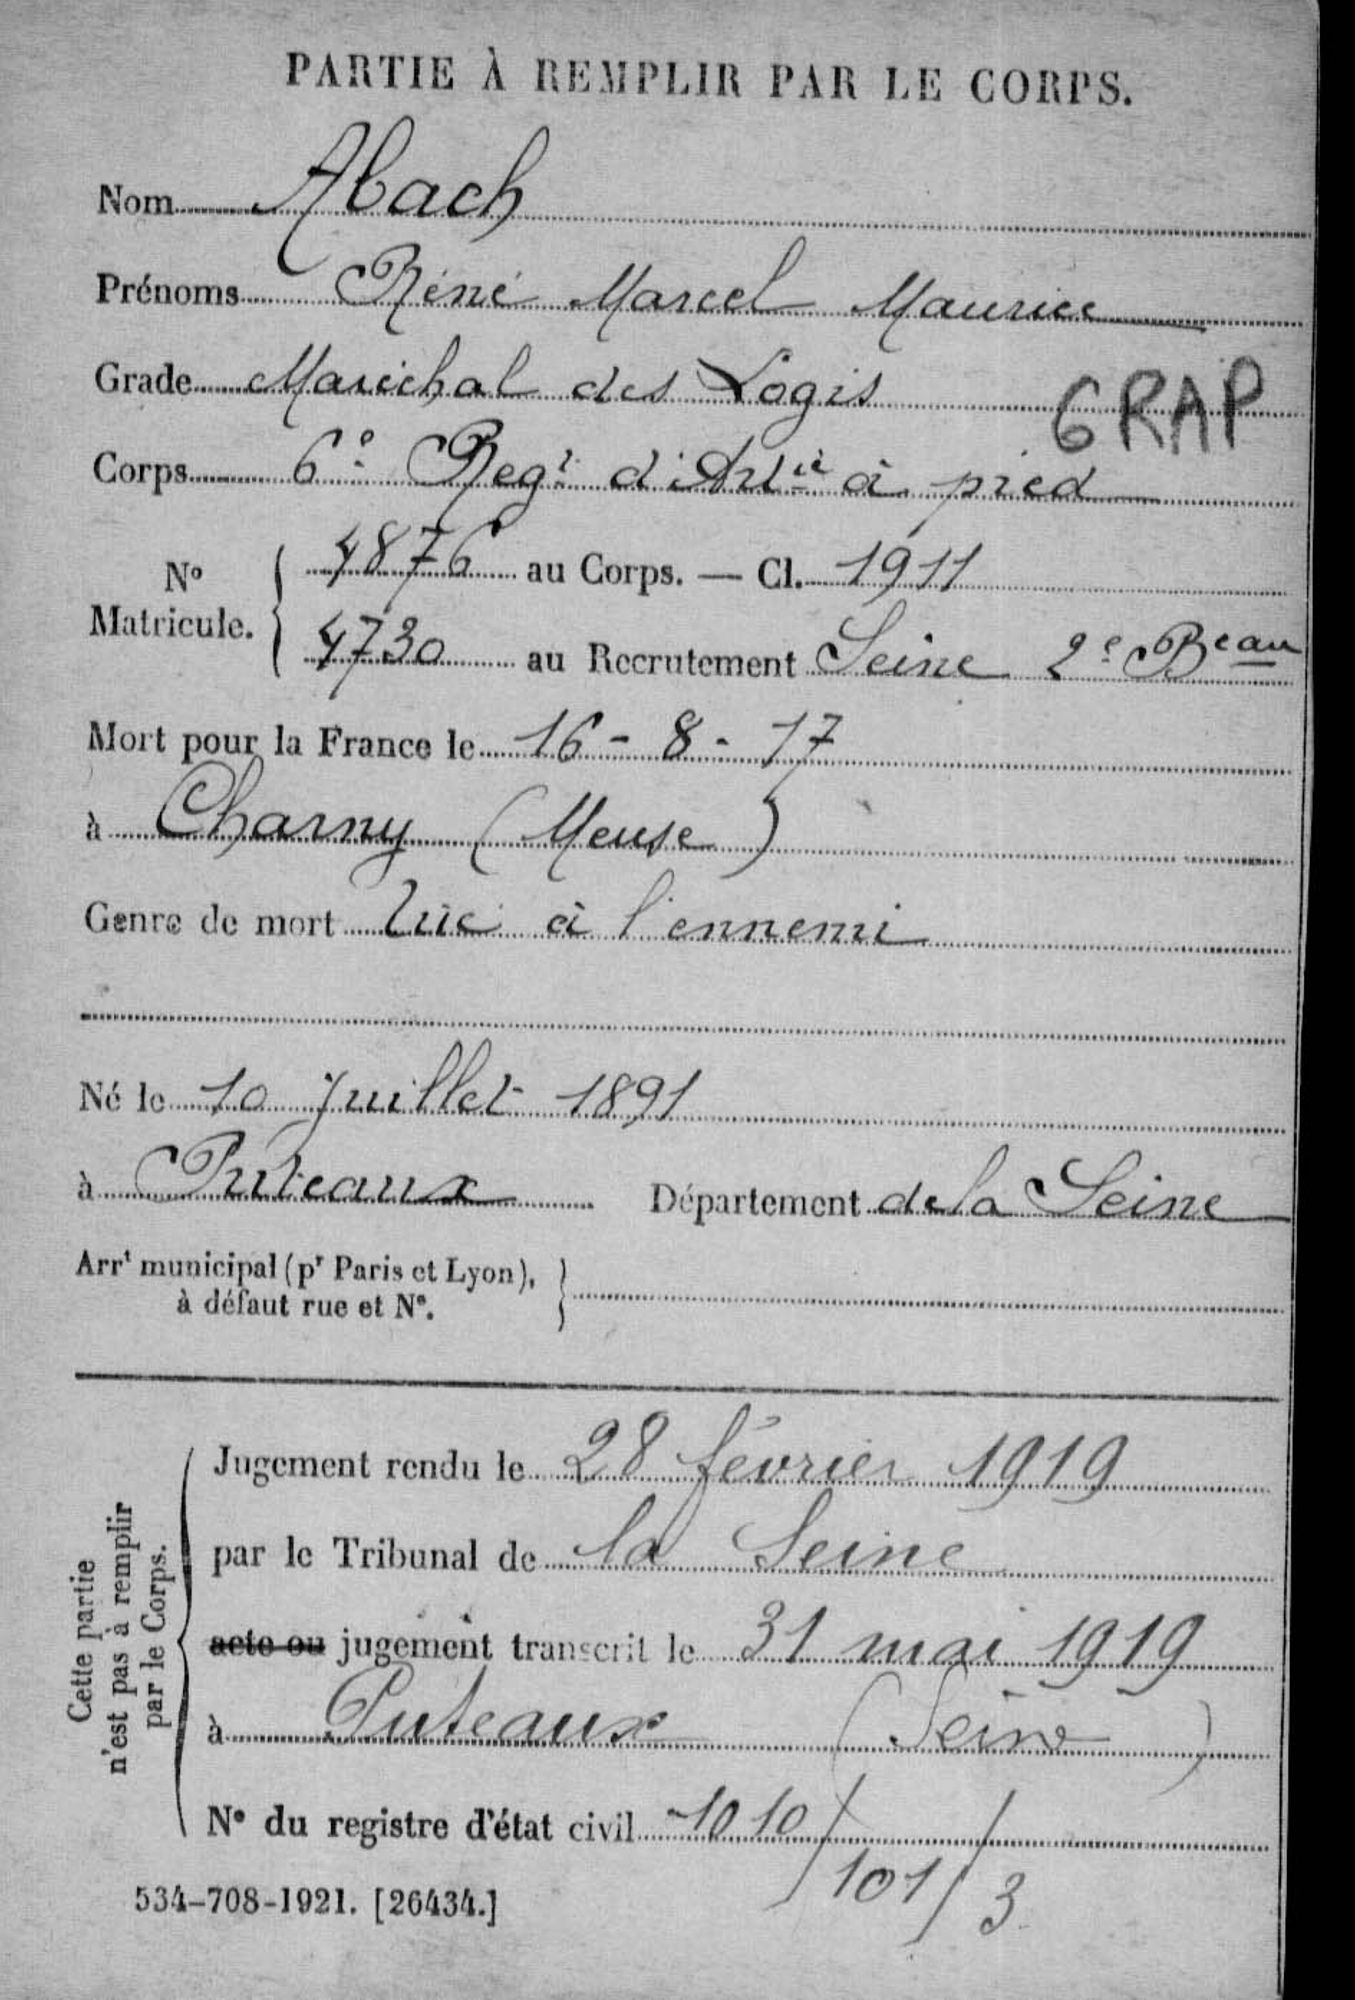 PARTIE À REMPLIR PAR LE CORPS.
Nom Abach
Prénoms Réné Marcel Maurice
Grade Maréchal des Logis
6RAP
Corps 6e Regt d'Artie à pied
No Matricule. { 4876 au Corps. — Cl. 1911
4730 au Recrutement Seine 2e Beau
Mort pour la France le 16 - 8 - 17
à Charny (Meuse)
Genre de mort Tué à l'ennemi
Né le 10 Juillet 1891
à Puteaux Département de la Seine
Arrt municipal (pr Paris et Lyon),
à défaut rue et No.
Cette partie
n'est pas à remplir
par le Corps.
Jugement rendu le 28 février 1919
par le Tribunal de la Seine
acte ou jugement transcrit le 31 mai 1919
à Puteaux (Seine)
No du registre d'état civil 1010/
101/3
534-708-1921. [26434.]